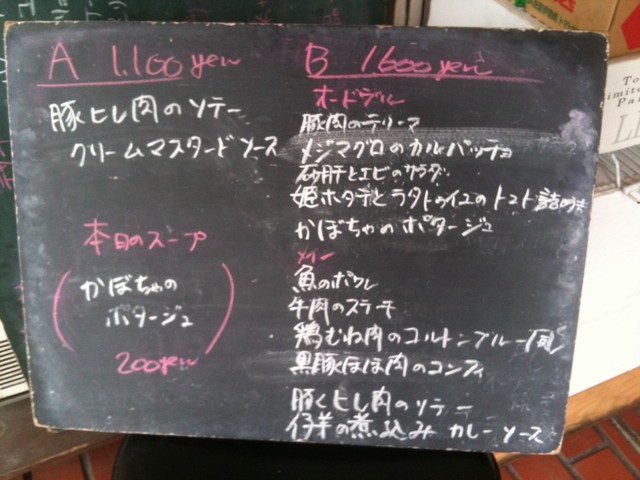 A 1.100yen
豚ヒレ肉のソテー
クリームマスタードソース
本日のスープ
かぼちゃの
ポタージュ
200yen
B 1600yen
オードブル
豚肉のテリーヌ
メジマグロのカルパッチョ
砂肝とエビのサラダ
姫ホタテとラタトゥイユのトマト詰め
かぼちゃのポタージュ
メイン
魚のポワレ
牛肉のステーキ
鶏むね肉のコルドンブルー風
黒豚ほほ肉のコンフィ
豚ヒレ肉のソテー
仔羊の煮込み カレーソース
To
Limite
Pa